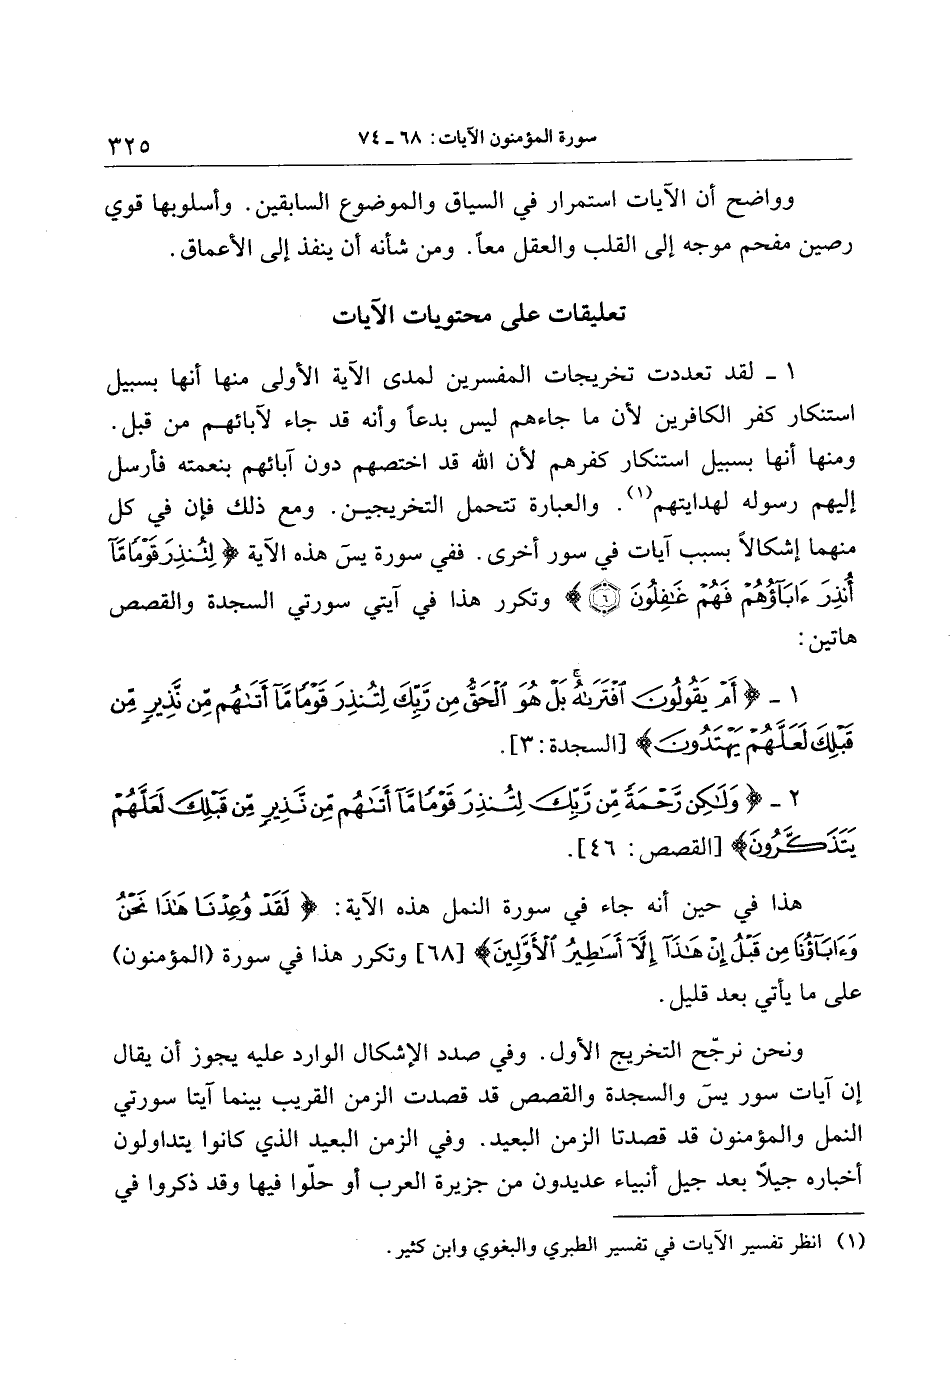 سورة المؤمنون الآيات: ٦٨ ـ ٧٤
٣٢٥
وواضح أن الآيات استمرار في السياق والموضوع السابقين. وأسلوبها قوي
رصين مفحم موجه إلى القلب والعقل معاً. ومن شأنه أن ينفذ إلى الأعماق.
تعليقات على محتويات الآيات
١ ـ لقد تعددت تخريجات المفسرين لمدى الآية الأولى منها أنها بسبيل
استنكار كفر الكافرين لأن ما جاءهم ليس بدعاً وأنه قد جاء لآبائهم من قبل.
ومنها أنها بسبيل استنكار كفرهم لأن الله قد اختصهم دون آبائهم بنعمته فأرسل
إليهم رسوله لهدايتهم(١). والعبارة تتحمل التخريجين. ومع ذلك فإن في كل
منهما إشكالاً بسبب آيات في سور أخرى. ففي سورة يسَ هذه الآية ﴿ لِتُنذِرَ قَوْمًا مَّآ
أُنذِرَ ءَابَآؤُهُمْ فَهُمْ غَـٰفِلُونَ ٦ ﴾ وتكرر هذا في آيتي سورتي السجدة والقصص
هاتين:
١ ـ ﴿ أَمْ يَقُولُونَ ٱفْتَرَىٰهُ ۚ بَلْ هُوَ ٱلْحَقُّ مِن رَّبِّكَ لِتُنذِرَ قَوْمًا مَّآ أَتَىٰهُم مِّن نَّذِيرٍ مِّن
قَبْلِكَ لَعَلَّهُمْ يَهْتَدُونَ ﴾ [السجدة: ٣].
٢ ـ ﴿ وَلَـٰكِن رَّحْمَةً مِّن رَّبِّكَ لِتُنذِرَ قَوْمًا مَّآ أَتَىٰهُم مِّن نَّذِيرٍ مِّن قَبْلِكَ لَعَلَّهُمْ
يَتَذَكَّرُونَ ﴾ [القصص: ٤٦].
هذا في حين أنه جاء في سورة النمل هذه الآية: ﴿ لَقَدْ وُعِدْنَا هَـٰذَا نَحْنُ
وَءَابَآؤُنَا مِن قَبْلُ إِنْ هَـٰذَآ إِلَّآ أَسَـٰطِيرُ ٱلْأَوَّلِينَ ﴾ [٦٨] وتكرر هذا في سورة (المؤمنون)
على ما يأتي بعد قليل.
ونحن نرجّح التخريج الأول. وفي صدد الإشكال الوارد عليه يجوز أن يقال
إن آيات سور يسَ والسجدة والقصص قد قصدت الزمن القريب بينما آيتا سورتي
النمل والمؤمنون قد قصدتا الزمن البعيد. وفي الزمن البعيد الذي كانوا يتداولون
أخباره جيلاً بعد جيل أنبياء عديدون من جزيرة العرب أو حلّوا فيها وقد ذكروا في
(١) انظر تفسير الآيات في تفسير الطبري والبغوي وابن كثير.